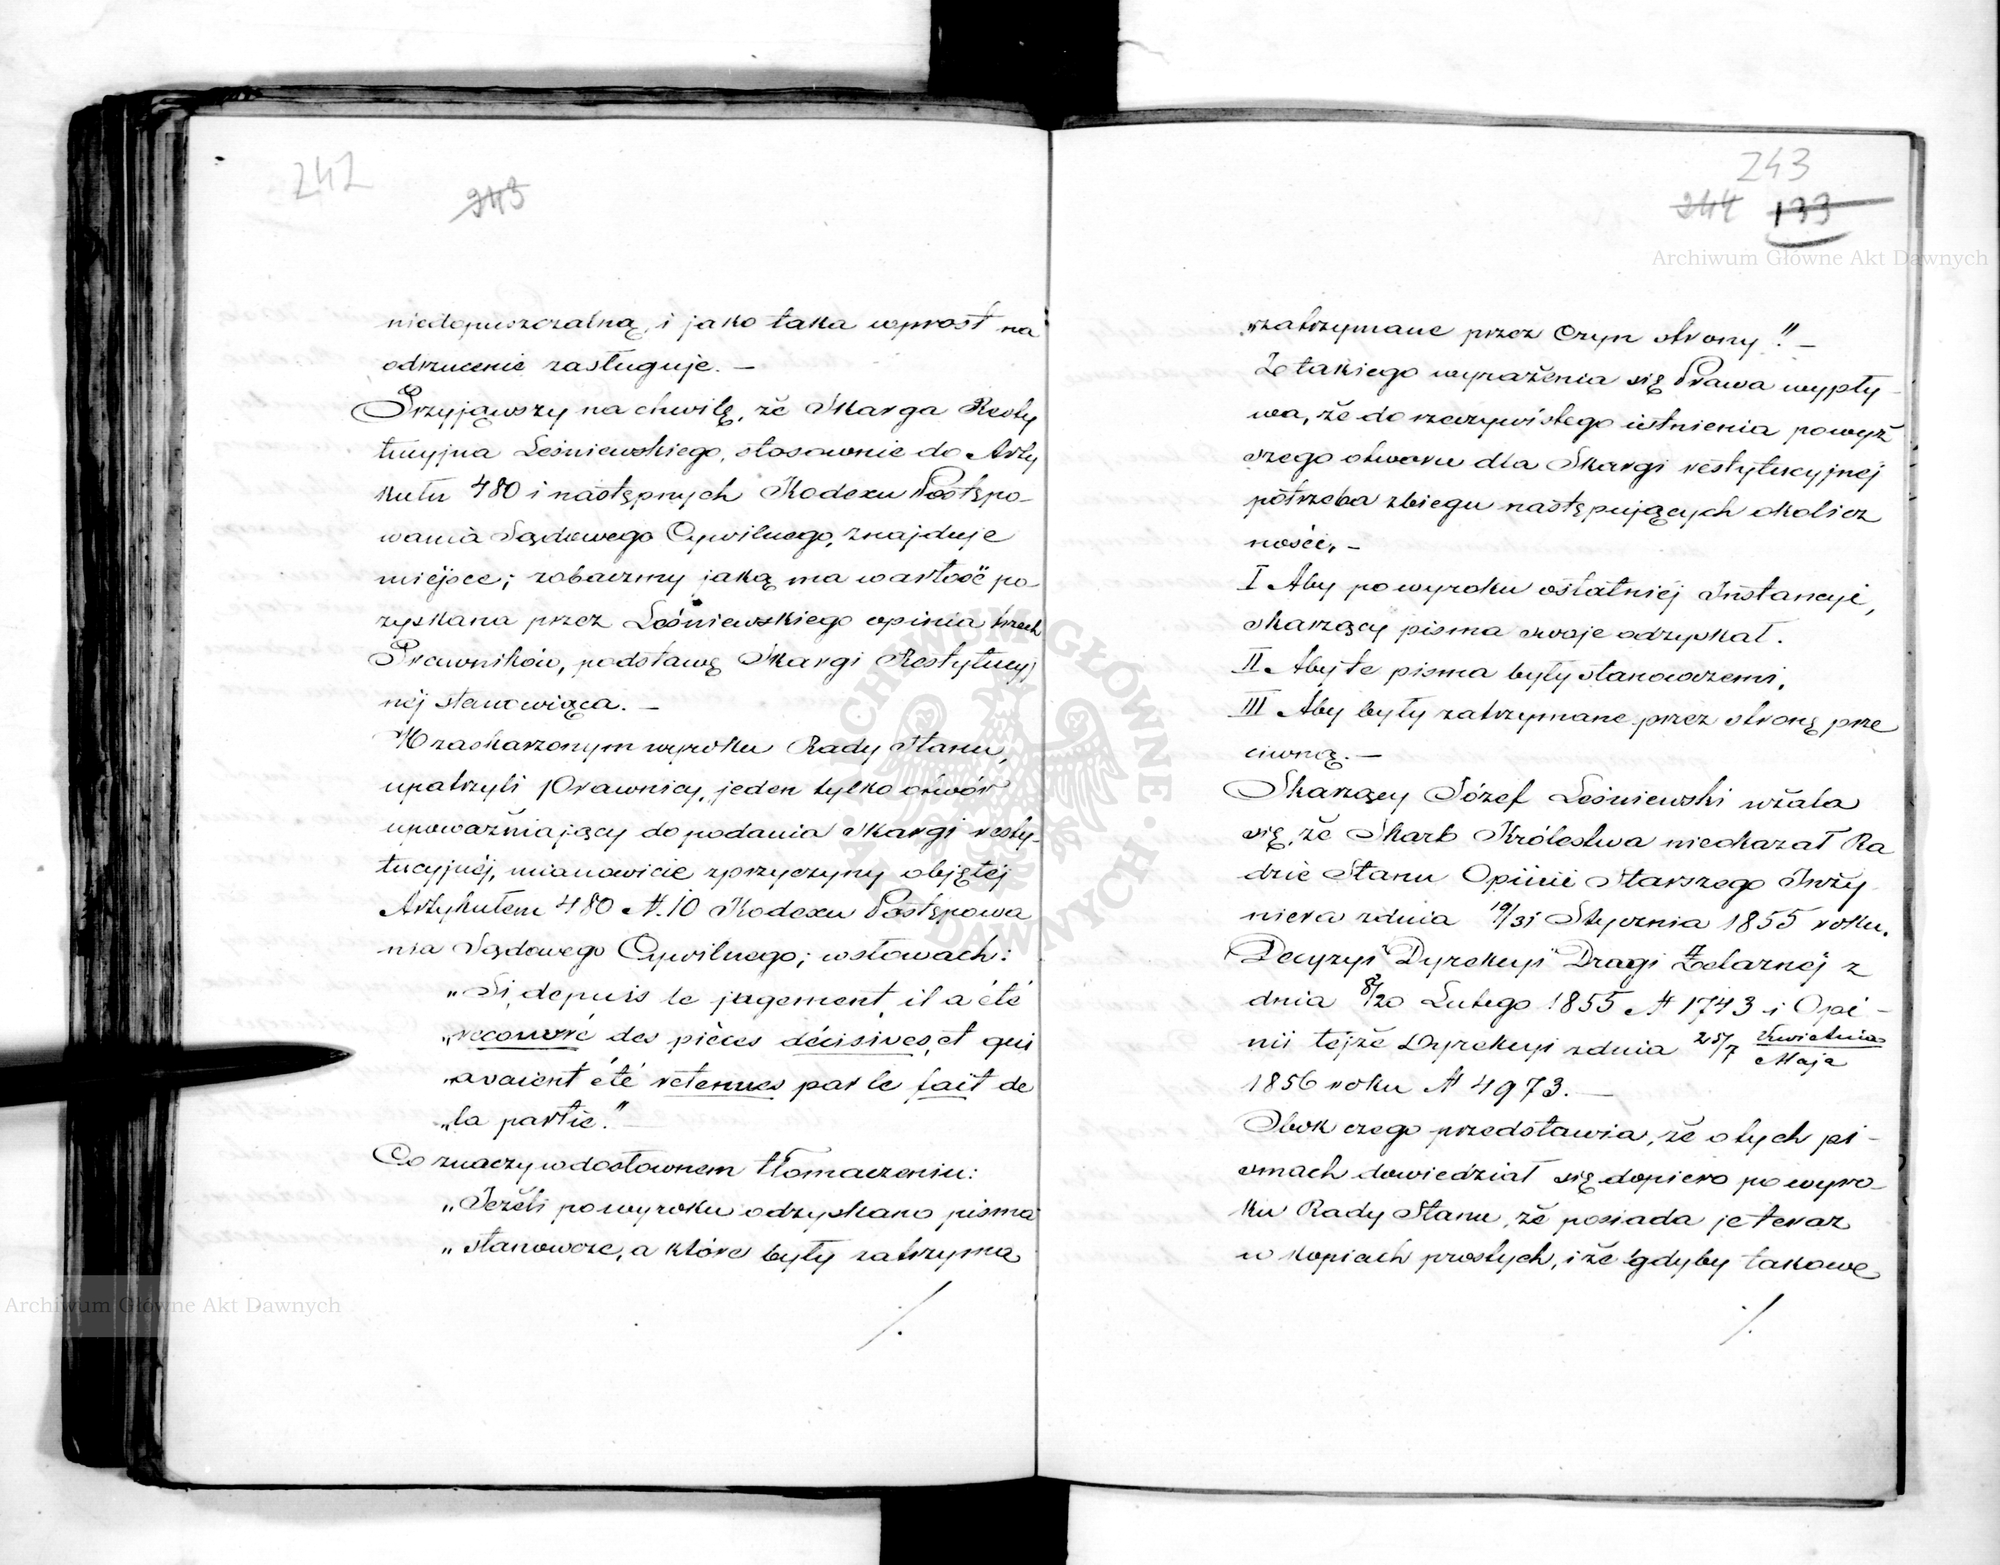 242
245
niedopuszczalną, i jako taka wprost na
odrzucenie zasługuje. —
Przyjąwszy na chwilę, że Skarga Resty
tucyjna Leśniewskiego, stosownie do Arty
kułu 480 i następnych Kodexu Postępo-
wania Sądowego Cywilnego, znajduje
miejsce; zobaczmy jaką ma wartość po-
zyskana przez Leśniewskiego opinia trzech
Prawników, podstawę Skargi Restytucyj
nej stanowiąca. —
W zaskarżonym wyroku Rady Stanu,
upatrzyli Prawnicy, jeden tylko otwór
upoważniający do podania Skargi resty-
tucyjnéj, mianowicie zprzyczyny objętej
Artykułem 480 N. 10 Kodexu Postępowa
nia Sądowego Cywilnego; w słowach:
„Si, depuis le jugement, il a été
„recouvré des pièces décisives, et qui
„avaient été retenues par le fait de
„la partie."
Co znaczy w dosłownem tłomaczeniu:
„Jeżeli po wyroku odzyskano pisma
„stanowcze, a które były zatrzyma
./.
243
244 133
„zatrzymane przez Czyn strony". —
Ze takiego wyrażenia się Prawa wypły-
wa, że do rzeczywistego istnienia powyż
szego otworu dla Skargi restytucyjnej
potrzeba zbiegu następujących okolicz
ności. —
I Aby po wyroku ostatniéj Instancyi,
skarżący pisma swoje odzyskał.
II Aby te pisma były stanowczemi,
III Aby były zatrzymane przez stronę prze
ciwną. —
Skarżący Józef Leśniewski użala
się, że Skarb Królestwa nieokazał Ra
dzie Stanu Opinii Starszego Inży-
niera zdnia 19/31 Stycznia 1855 roku.
Decyzyi Dyrekcyi Drogi Żelaznéj z
dnia 8/20 Lutego 1855 N 1743 i Opi-
nii tejże Dyrekcyi zdnia 25/7 Kwietnia
Maja
1856 roku N 4973. —
Obok czego przedstawia, że o tych pi-
smach dowiedział się dopiero po wyro-
ku Rady Stanu, że posiada je teraz
w kopiach prostych, i że gdyby takowe
./.
Archiwum Główne Akt Dawnych
Archiwum Główne Akt Dawnych
ARCHIWUM GŁÓWNE AKT DAWNYCH